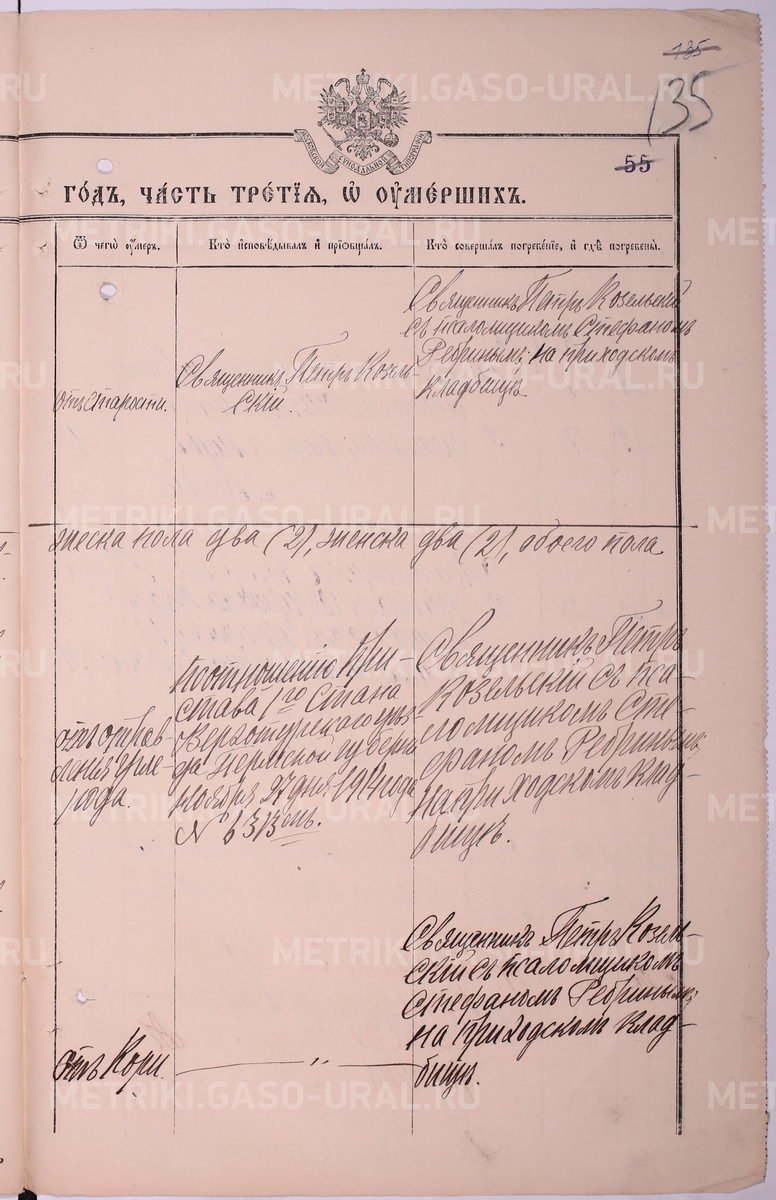 135
135
55
МОСКОВСКОЙ СѴНОДАЛЬНОЙ ТИПОГРАФІИ
ГО́ДЪ, ЧА́СТЬ ТРЕ́ТІѦ, Ѡ҆ ОУ҆МЕ́РШИХЪ.
Ѿ чегѡ̀ оу҆́меръ.
Кто̀ и҆сповѣ́дывалъ и҆ прїѡбща́лъ.
Кто̀ соверша́лъ погребе́нїе, и҆ гдѣ̀ погребены̀.
отъ старости.
Священникъ Петръ Козель-
скій.
Священникъ Петръ Козельскій
съ псаломщикомъ Стефаномъ
Ребринымъ; на приходскомъ
кладбищѣ.
жеска пола два (2), женска два (2), обоего пола
отъ отрав-
ленія
Поотношенію При-
става 1го Стана
Верхотурскаго уѣз-
да Пермской губерніи
Ноября 27 дня 1914 года
№ 6313
Священникъ Петръ
Козельскій съ пса-
ломщикомъ Сте-
фаномъ Ребринымъ;
на приходскомъ клад-
бищѣ.
отъ Кори.
— „ —
Священникъ Петръ Козель-
скій съ псаломщикомъ
Стефаномъ Ребринымъ;
на приходскомъ клад-
бищѣ.
METRIKI.GASO-URAL.RU